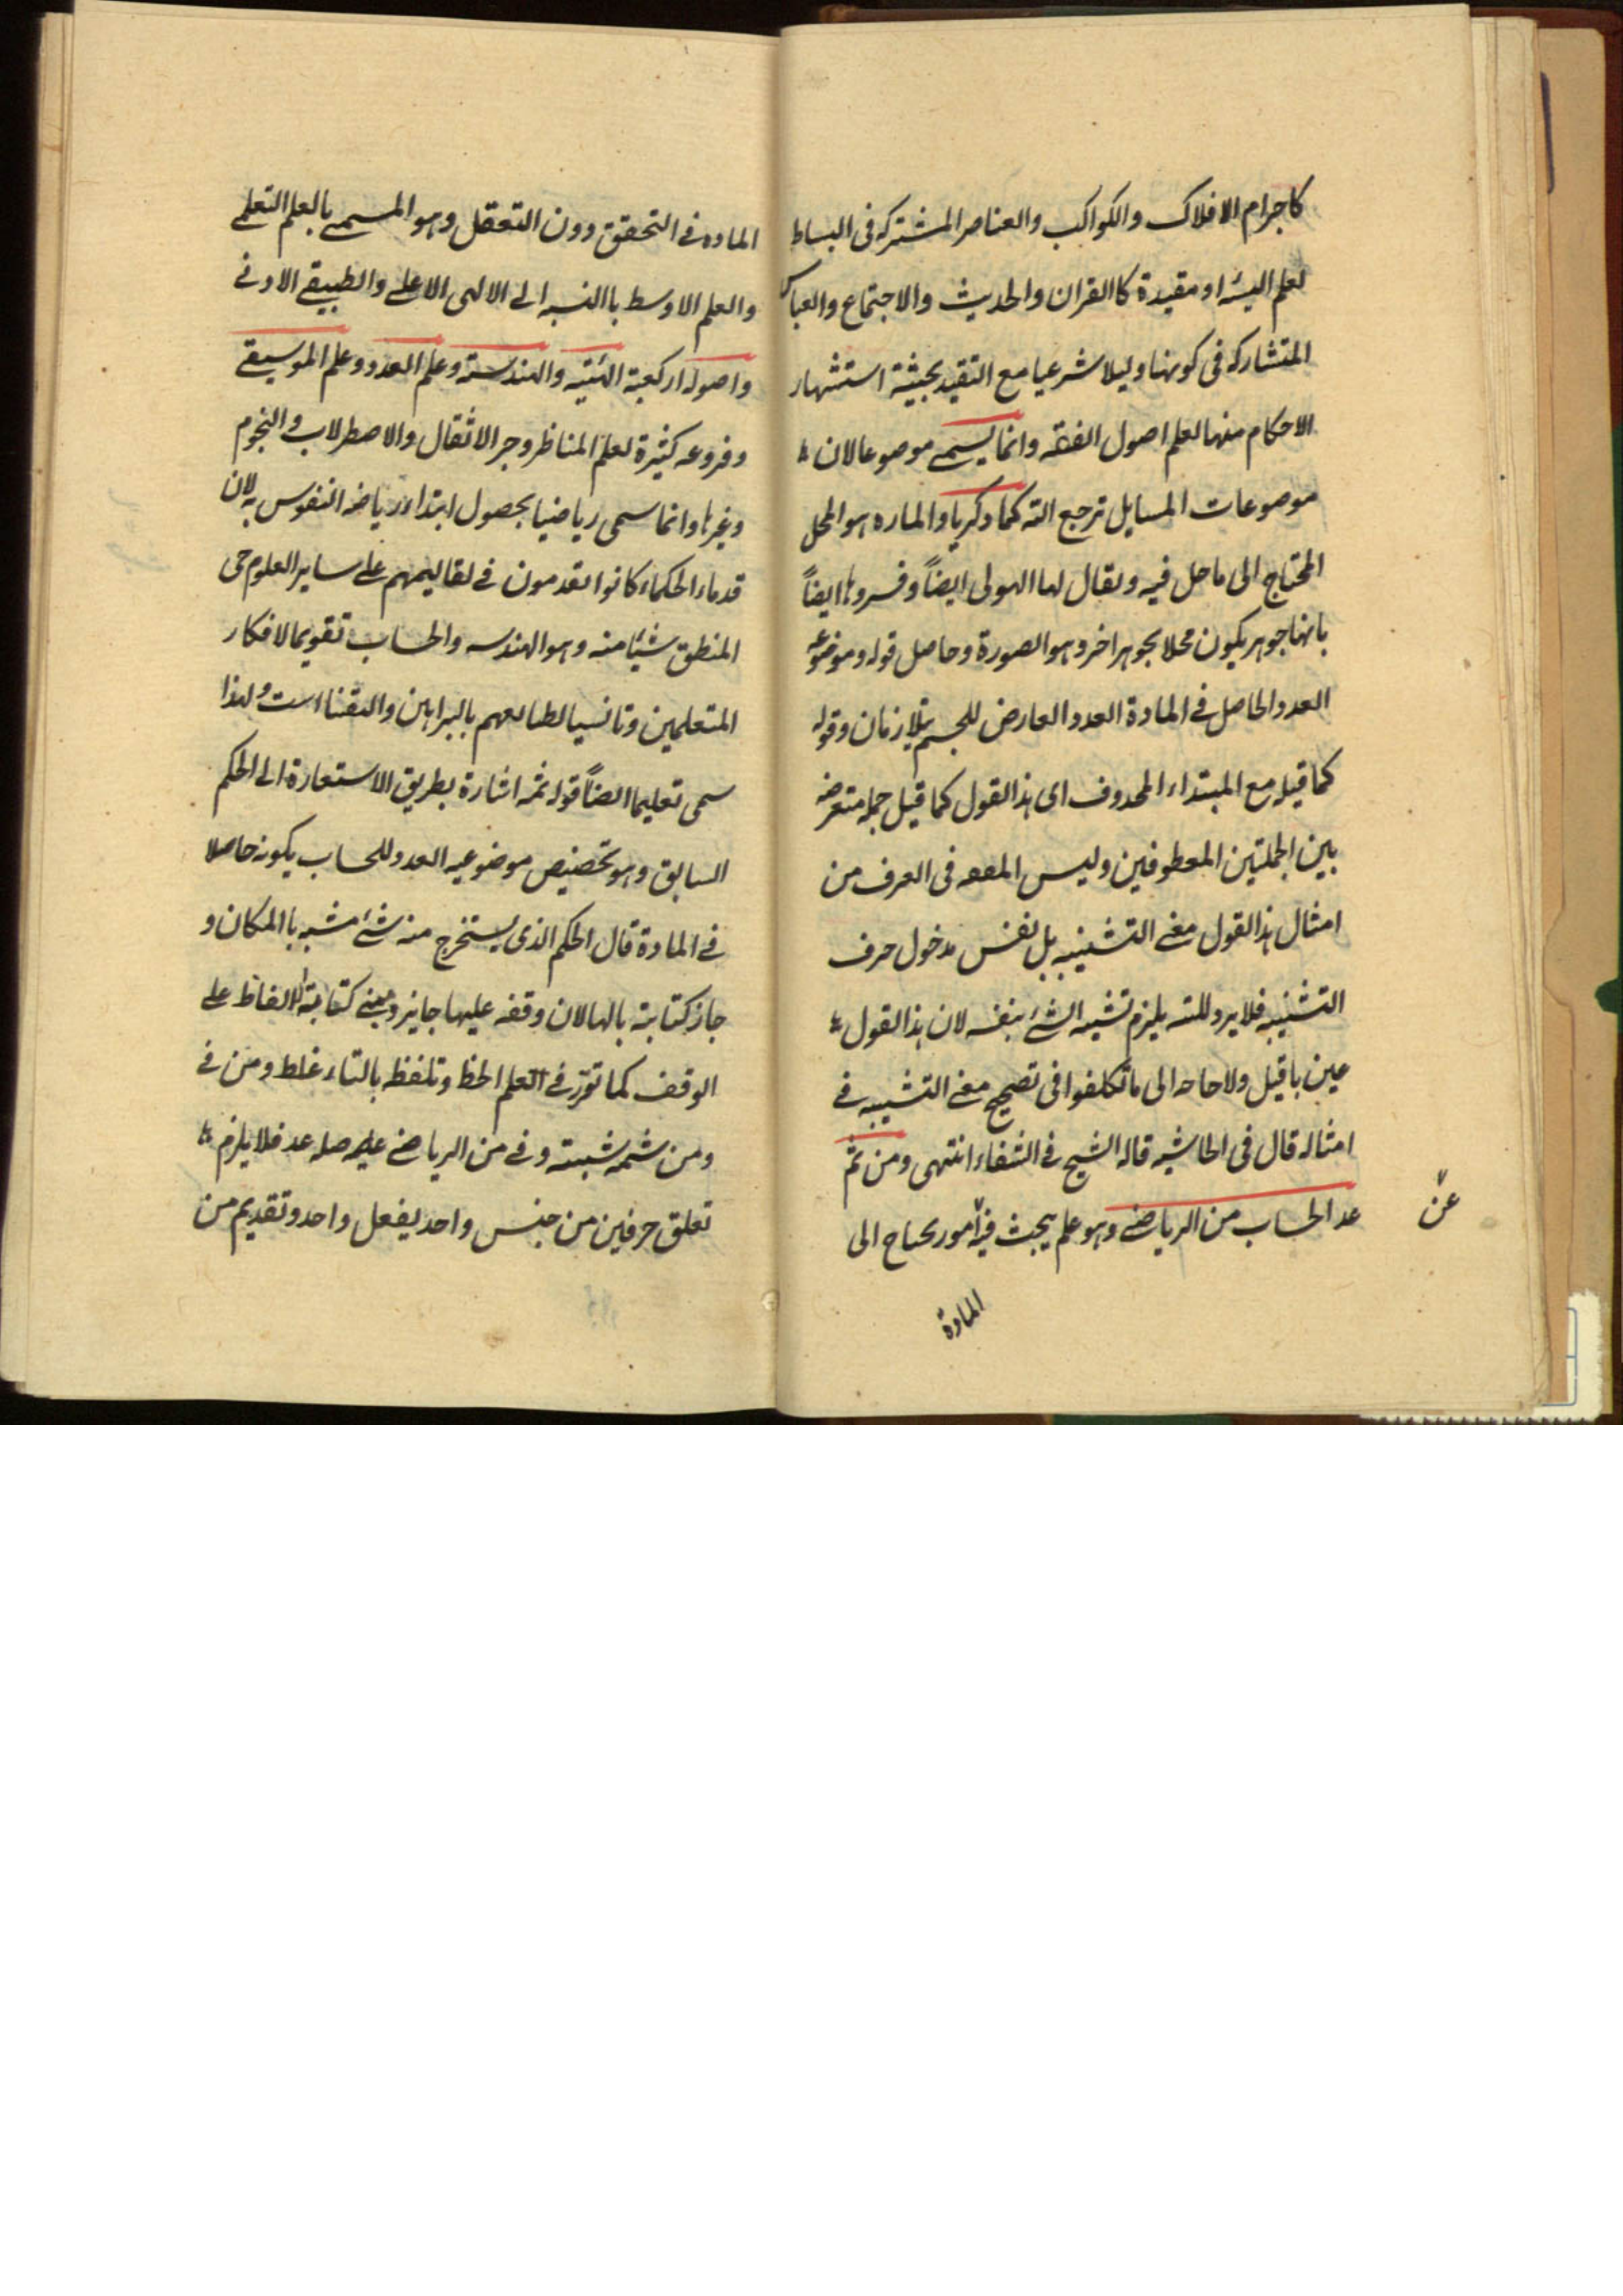 كاجرام الافلاك والكواكب والعناصر المشتركه فى البساط
لعلم الهيئه او مقيدة كالقران والحديث والاجتماع والقياس
المتشاركه فى كونها دليلا شرعيا مع التقيد بحيثية استشهار
الاحكام منها لعلم اصول الفقه وانما يسمى موضوعا لان
موضوعات المسايل ترجع اليه كما ذكرنا والماده هو المحل
المحتاج الى ما حل فيه ويقال لها الهيولى ايضاً وفسروها ايضاً
بانها جوهر يكون محلا بجوهر اخر وهو الصورة وحاصل قوله وموضوعه
العدد الحاصل فى المادة العدد العارض للجسم وقوله
كما قيل مع المبتداء المحذوف اى هذا القول كما قيل جمله معترضه
بين الجملتين المعطوفين وليس المقصد فى العرف من
امثال هذا القول معنى التشبيه بل نفس مدخول حرف
التشبيه فلا يرد انه يلزم تشبيه الشئ بنفسه لان هذا القول
عين ما قيل ولا حاجه الى ما تكلفوا فى تصحيح معنى التشبيه فى
امثاله قال فى الحاشيه قاله الشيخ فى الشفاء انتهى ومن ثم
عد الحساب من الرياضى وهو علم يبحث فيه امور يحتاج الى
المادة
الماده فى التحقق دون التعقل وهو المسمى بالعلم التعليمى
والعلم الاوسط باالنسبه الى الالهى الاعلى والطبيعى الادنى
واصوله اربعة الهيئه والهندسة وعلم العدد وعلم الموسيقى
وفروعه كثيرة لعلم المناظر وجر الاثقال والاصطرلاب والنجوم
وغيرها وانما سمى رياضيا بحصول ابتداء رياضه النفوس به لان
قدماء الحكماء كانوا يقدمون فى تعاليمهم على ساير العلوم حتى
المنطق شيئا منه وهو الهندسه والحساب تقويما لافكار
المتعلمين وتانيسا لطبائعهم بالبراهين واليقينيات ولهذا
سمى تعليميا ايضاً قوله ثمه اشارة بطريق الاستعارة الى الحكم
السابق وهو تخصيص موضوعيه العدد للحساب بكونه حاصلا
فى المادة قال الحكم الذى يستخرج منه شئ مشبه باالمكان و
جاز كتابته بالها لان وقفه عليها جايز ومبنى كتابة الالفاظ على
الوقف كما تقرر فى العلم الخط وتلفظه بالتاء غلط ومن فى
ومن ثمه سببية وفى من الرياضى صله عد فلا يلزم
تعلق حرفين من جنس واحد بفعل واحد وتقديم من